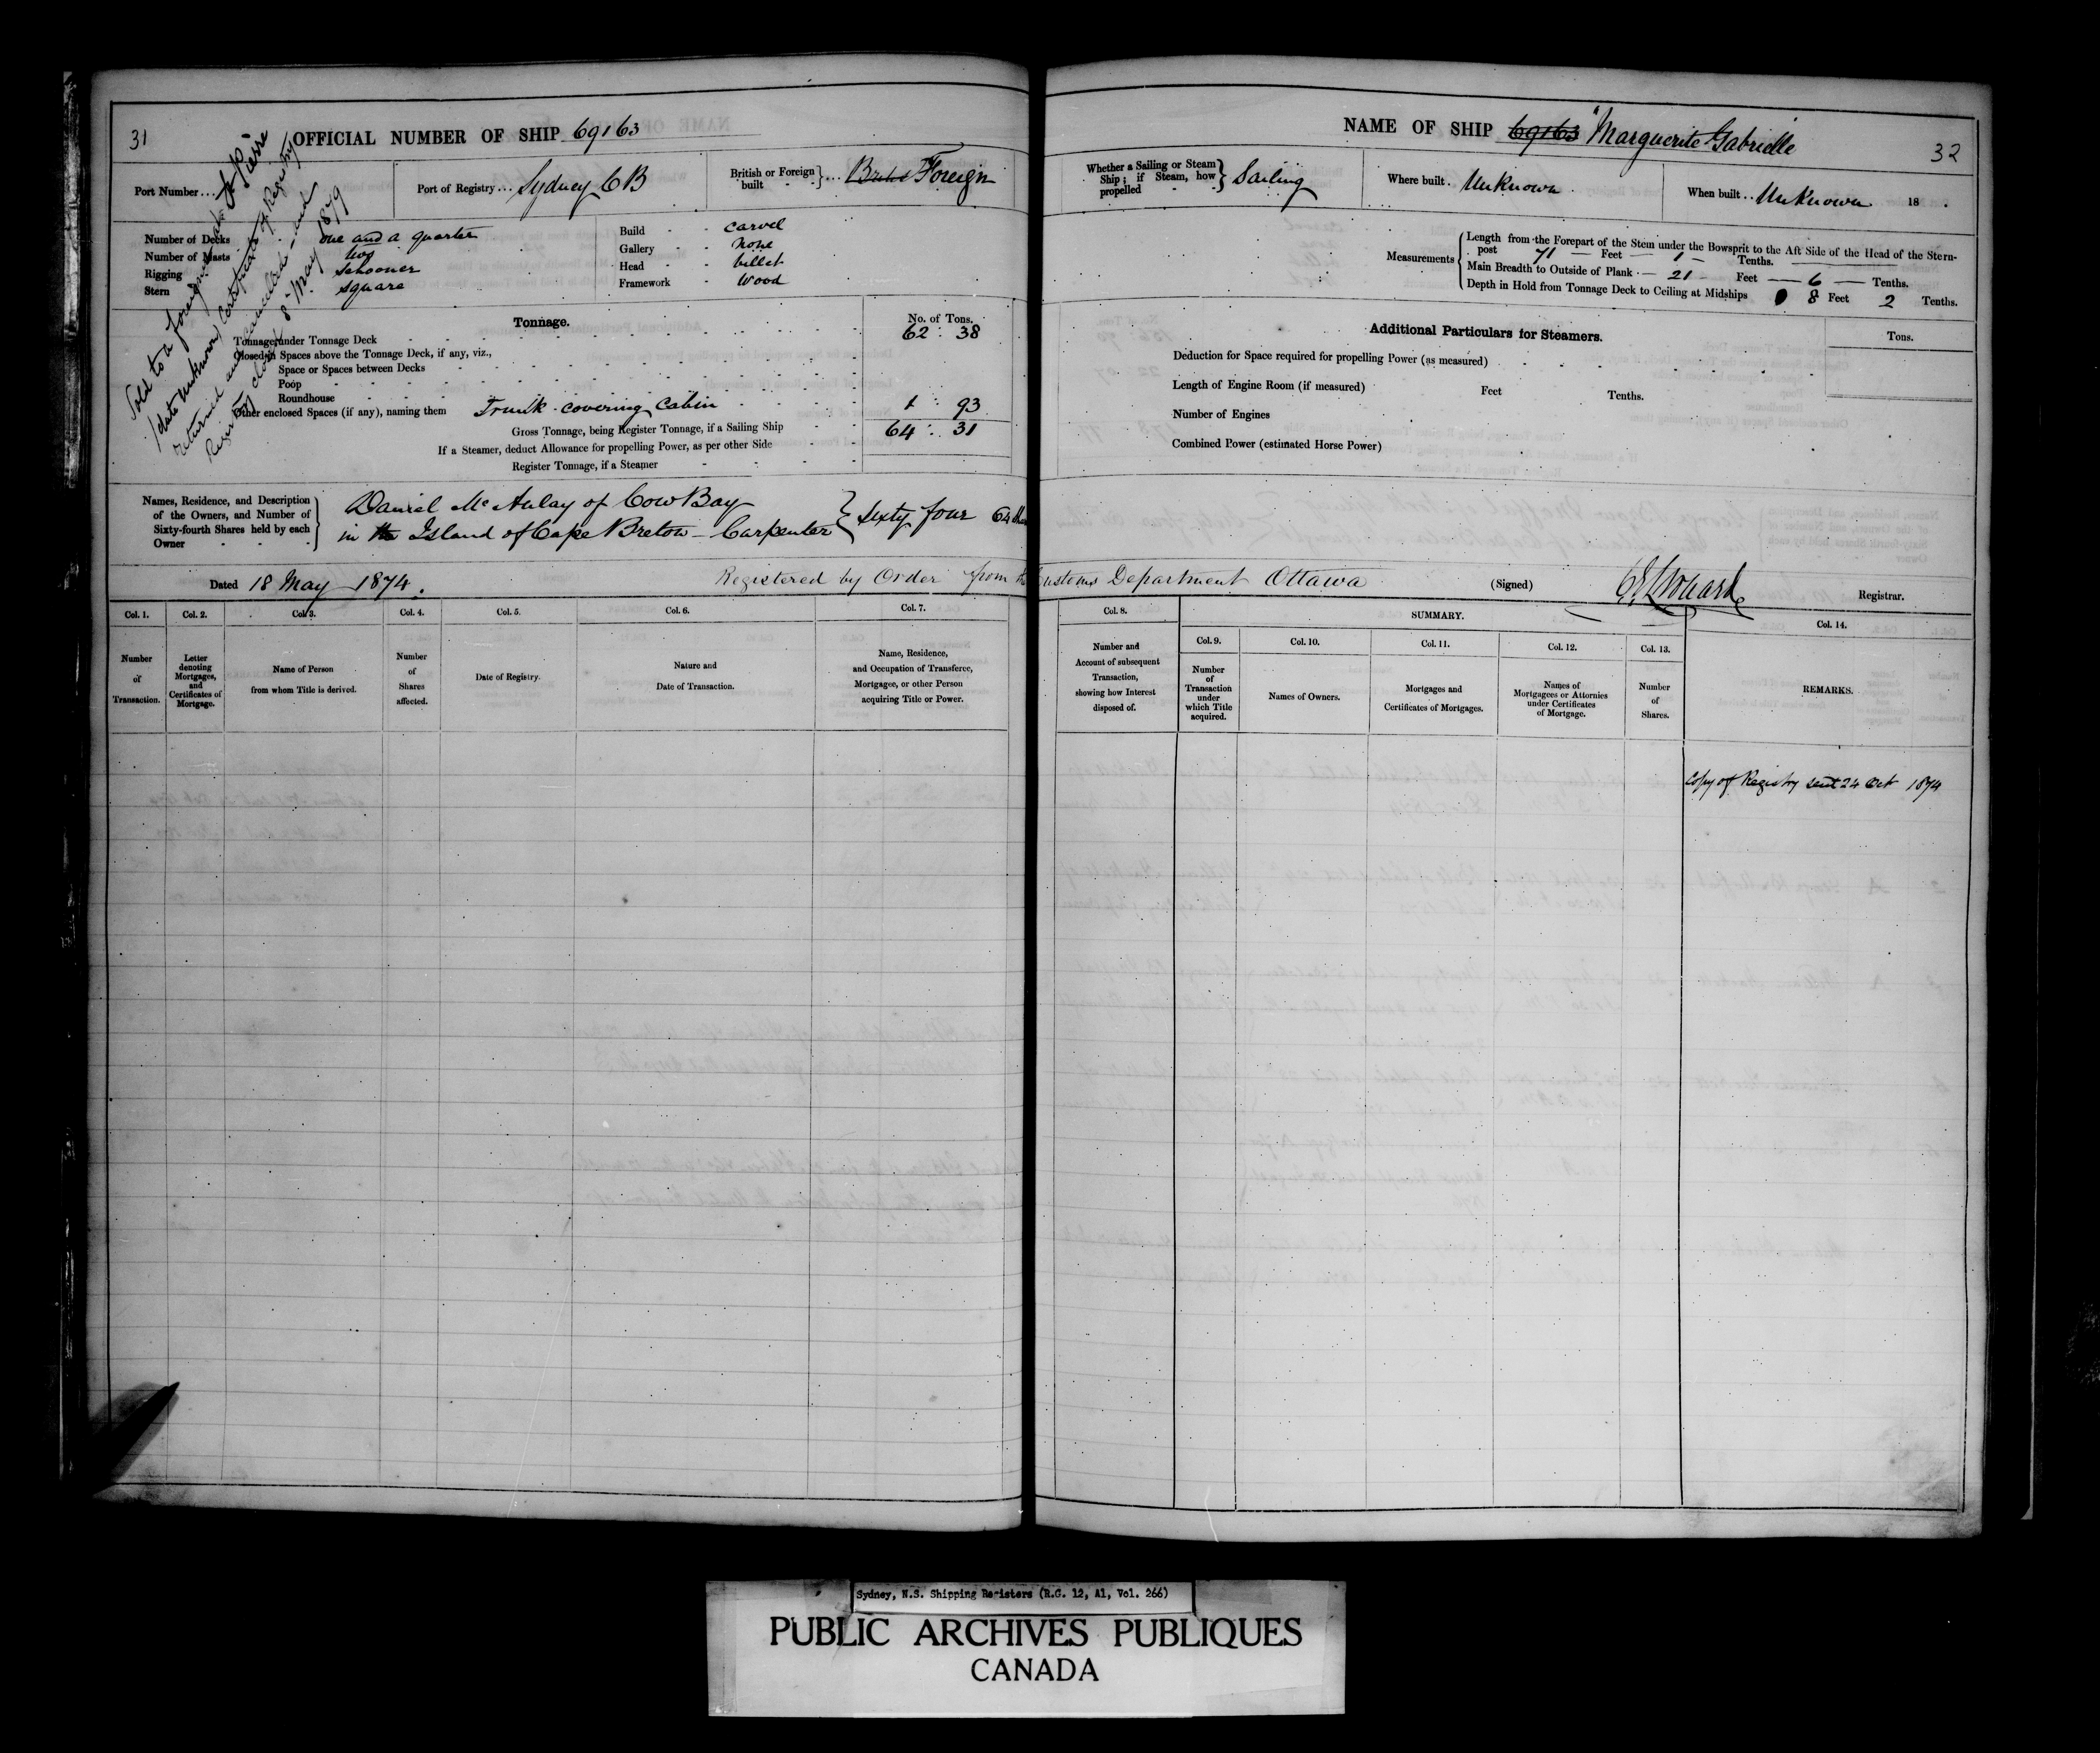 31
OFFICIAL NUMBER OF SHIP 69163
Port Number...
Port of Registry... Sydney CB
British or Foreign built } ... Foreign
Sold to a foreigner at St Pierre
(date unknown) Certificate of Registry
returned and cancelled and
Registry closed 8th May 1879
Number of Decks one and a quarter
Number of Masts two
Rigging Schooner
Stern Square
Build - - carvel
Gallery - - None
Head - - billet
Framework - wood
Tonnage.
No. of Tons.
Tonnage under Tonnage Deck 62 : 38
Closed-in Spaces above the Tonnage Deck, if any, viz.,
Space or Spaces between Decks
Poop
Roundhouse
Other enclosed Spaces (if any), naming them Trunk covering Cabin 1 93
Gross Tonnage, being Register Tonnage, if a Sailing Ship 64 : 31
If a Steamer, deduct Allowance for propelling Power, as per other Side
Register Tonnage, if a Steamer
Names, Residence, and Description
of the Owners, and Number of
Sixty-fourth Shares held by each
Owner
Daniel McAulay of Cow Bay
in the Island of Cape Breton – Carpenter } Sixty four 64 Shar
Dated 18 May 1874.
Registered by Order from the
Col. 1. Col. 2. Col. 3. Col. 4. Col. 5. Col. 6. Col. 7.
Number of Transaction.
Letter denoting Mortgages, and Certificates of Mortgage.
Name of Person from whom Title is derived.
Number of Shares affected.
Date of Registry.
Nature and Date of Transaction.
Name, Residence, and Occupation of Transferee, Mortgagee, or other Person acquiring Title or Power.
NAME OF SHIP 69163 "Marguerite Gabrielle
32
Whether a Sailing or Steam Ship; if Steam, how propelled } Sailing
Where built. Unknown
When built.. Unknown 18 .
Measurements
Length from the Forepart of the Stem under the Bowsprit to the Aft Side of the Head of the Stern-
post 71 Feet 1 Tenths.
Main Breadth to Outside of Plank 21 Feet 6 Tenths.
Depth in Hold from Tonnage Deck to Ceiling at Midships 8 Feet 2 Tenths.
Additional Particulars for Steamers.
Tons.
Deduction for Space required for propelling Power (as measured)
Length of Engine Room (if measured) Feet Tenths.
Number of Engines
Combined Power (estimated Horse Power)
Customs Department Ottawa
(Signed) Registrar.
Col. 8. SUMMARY. Col. 14.
Col. 9. Col. 10. Col. 11. Col. 12. Col. 13.
Number and Account of subsequent Transaction, showing how Interest disposed of.
Number of Transaction under which Title acquired.
Names of Owners.
Mortgages and Certificates of Mortgages.
Names of Mortgagees or Attornies under Certificates of Mortgage.
Number of Shares.
REMARKS.
Copy of Registry sent 24 Oct 1874
Sydney, N.S. Shipping Registers (R.G. 12, A1, Vol. 266)
PUBLIC ARCHIVES PUBLIQUES
CANADA